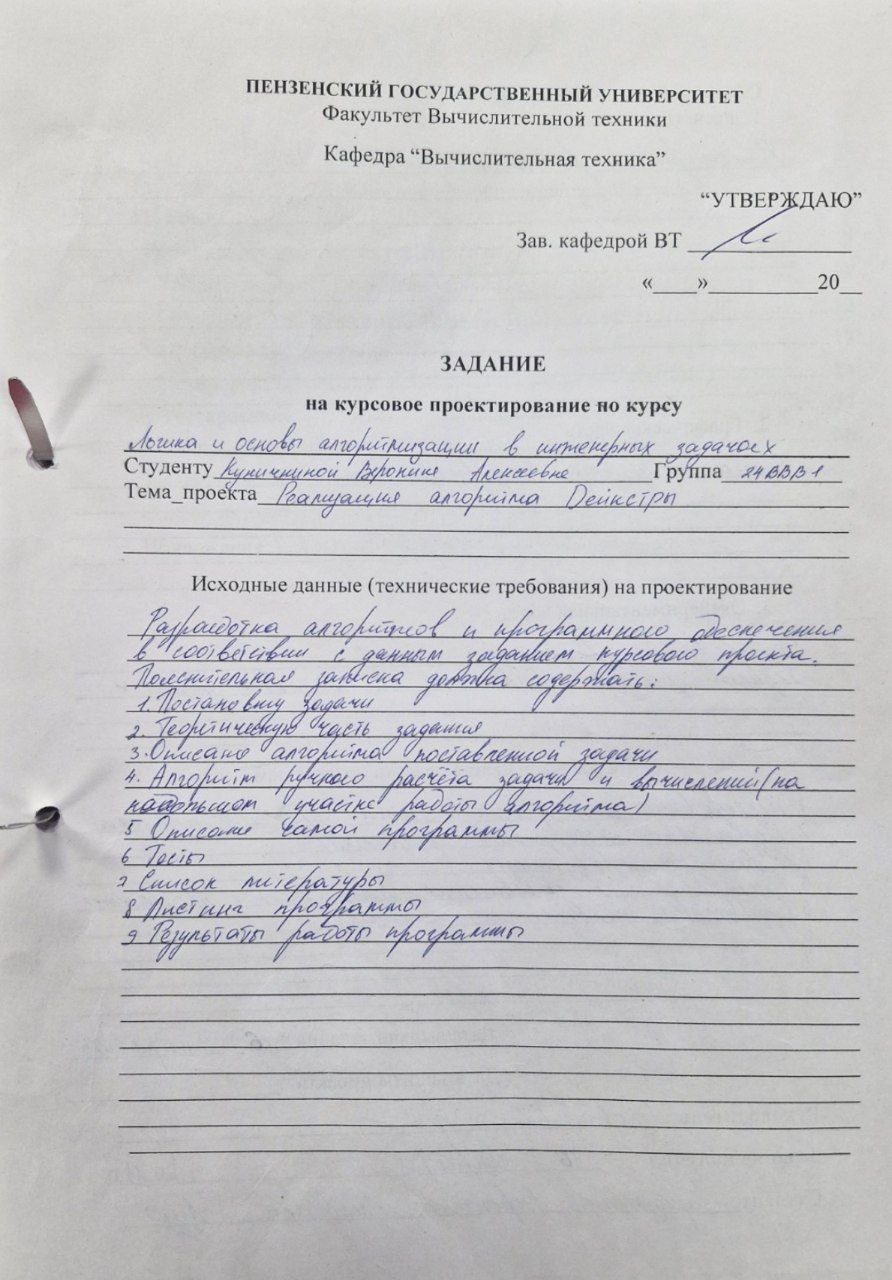 ПЕНЗЕНСКИЙ ГОСУДАРСТВЕННЫЙ УНИВЕРСИТЕТ
Факультет Вычислительной техники
Кафедра “Вычислительная техника”
“УТВЕРЖДАЮ”
Зав. кафедрой ВТ ____________
«____»__________20__
ЗАДАНИЕ
на курсовое проектирование по курсу
Логика и основы алгоритмизации в инженерных задачах
Студенту Веронике Алексеевне Группа 24ВВВ1
Тема_проекта Реализация алгоритма Дейкстры
Исходные данные (технические требования) на проектирование
Разработка алгоритмов и программного обеспечения
в соответствии с данным заданием курсового проекта.
Пояснительная записка должна содержать:
1. Постановку задачи
2. Теоретическую часть задания
3. Описание алгоритма поставленной задачи
4. Алгоритм ручного расчёта задачи и вычислений (на
небольшом участке работы алгоритма)
5 Описание самой программы
6 Тесты
7 Список литературы
8 Листинг программы
9 Результаты работы программы